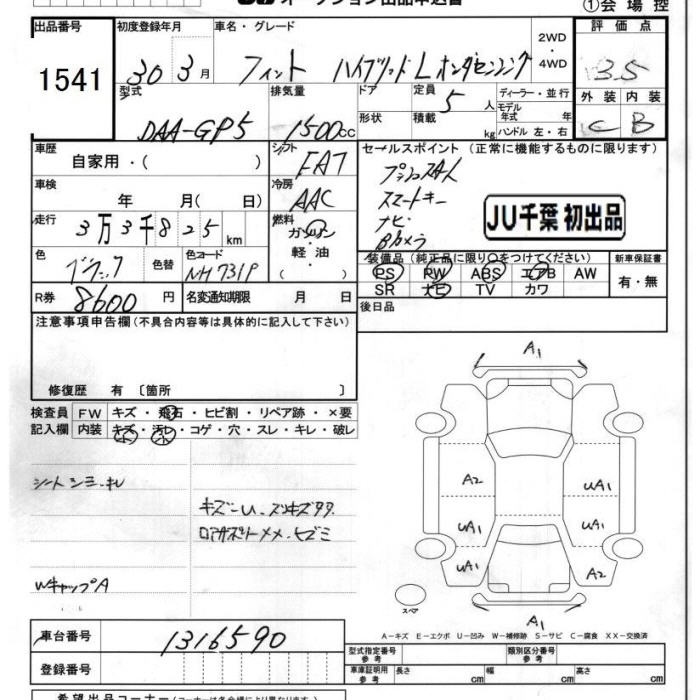 オークション出品申込書
①会場控
出品番号
1541
初度登録年月
30 3月
車名・グレード
フィット ハイブリッド L ホンダセンシング
2WD・4WD
評価点
3.5
外装 内装
C B
型式
DAA-GP5
排気量
1500cc
ドア
形状
定員
5人
積載
kg
ディーラー・並行
モデル年式 年
ハンドル 左・右
車歴
自家用・( )
シフト
FA7
車検
年 月(日)
冷房
AAC
走行
3万3千825km
燃料
ガソリン
軽油
( )
色
ブラック
色替
色コード
NH731P
R券
8600円
名変通知期限 月 日
セールスポイント (正常に機能するものに限ります)
プッシュスタート
スマートキー
ナビ
Bカメラ
JU千葉 初出品
装備品(純正品に限り○をつけてください)
PS PW ABS エアB AW
SR ナビ TV カワ
新車保証書
有・無
後日品
注意事項申告欄(不具合内容等は具体的に記入して下さい)
修復歴 有〔箇所 〕
検査員記入欄
FW キズ・飛石・ヒビ割・リペア跡・×要
内装 キズ・汚レ・コゲ・穴・スレ・キレ・破レ
キズ~U、スリキズタタ
WキャップA
A1
A2 UA1
UA1 UA1
UA1 A2
スペア
A1
A-キズ E-エクボ U-凹み W-補修跡 S-サビ C-腐食 XX-交換済
車台番号
1316590
登録番号
型式指定番号
参考
類別区分番号
参考
車庫証明用
参考
長さ cm
幅 cm
高さ cm
希望出品コーナー(コーナーは各会場により異なります)